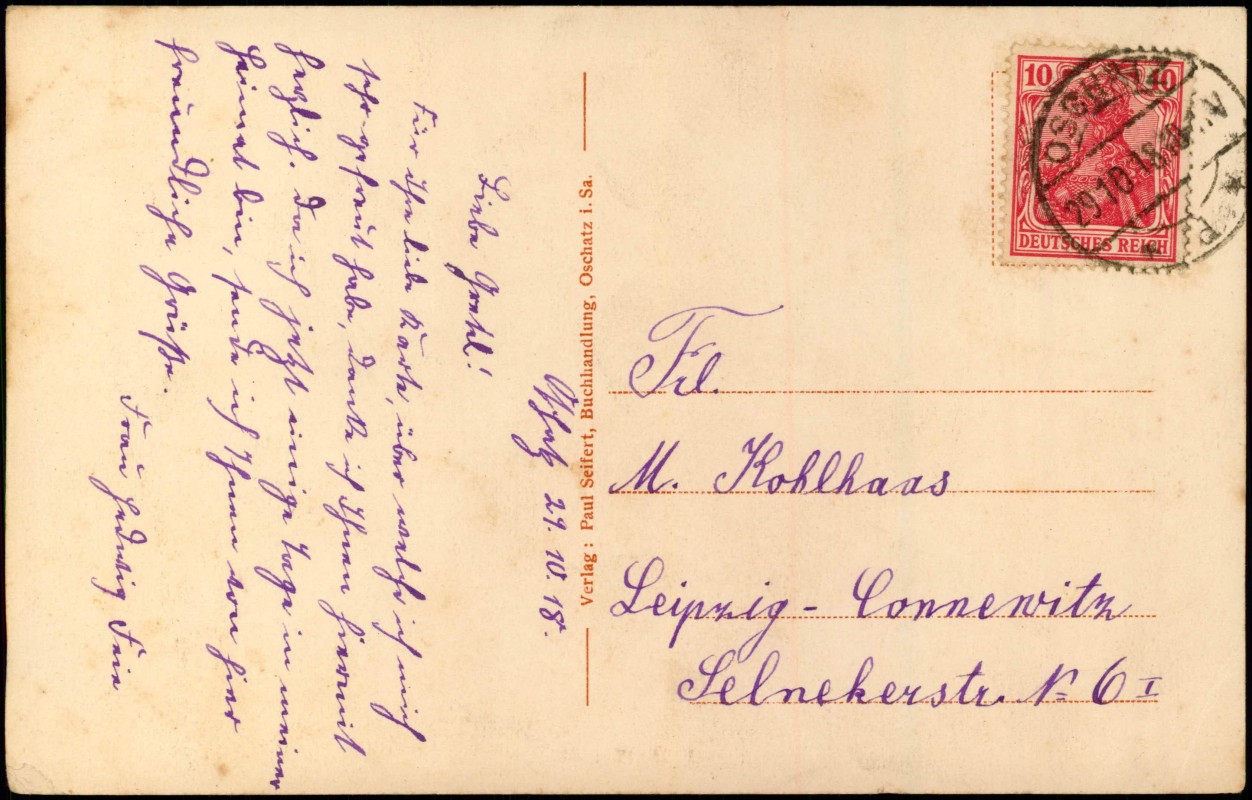 Oschatz 29. 10. 18.
Liebe Gretel!
Für Ihre liebe Karte, über welche ich mich
sehr gefreut habe, danke ich Ihnen hiermit
herzlich. Da ich jetzt einige Tage in meiner
Heimat bin, sende ich Ihnen von hier
freundliche Grüße.
Frau Hedwig
Verlag: Paul Seifert, Buchhandlung, Oschatz i. Sa.
10 10
DEUTSCHES REICH
OSCHATZ
29.10.18
Frl.
M. Kohlhaas
Leipzig - Connewitz
Selnekerstr. No 6 I